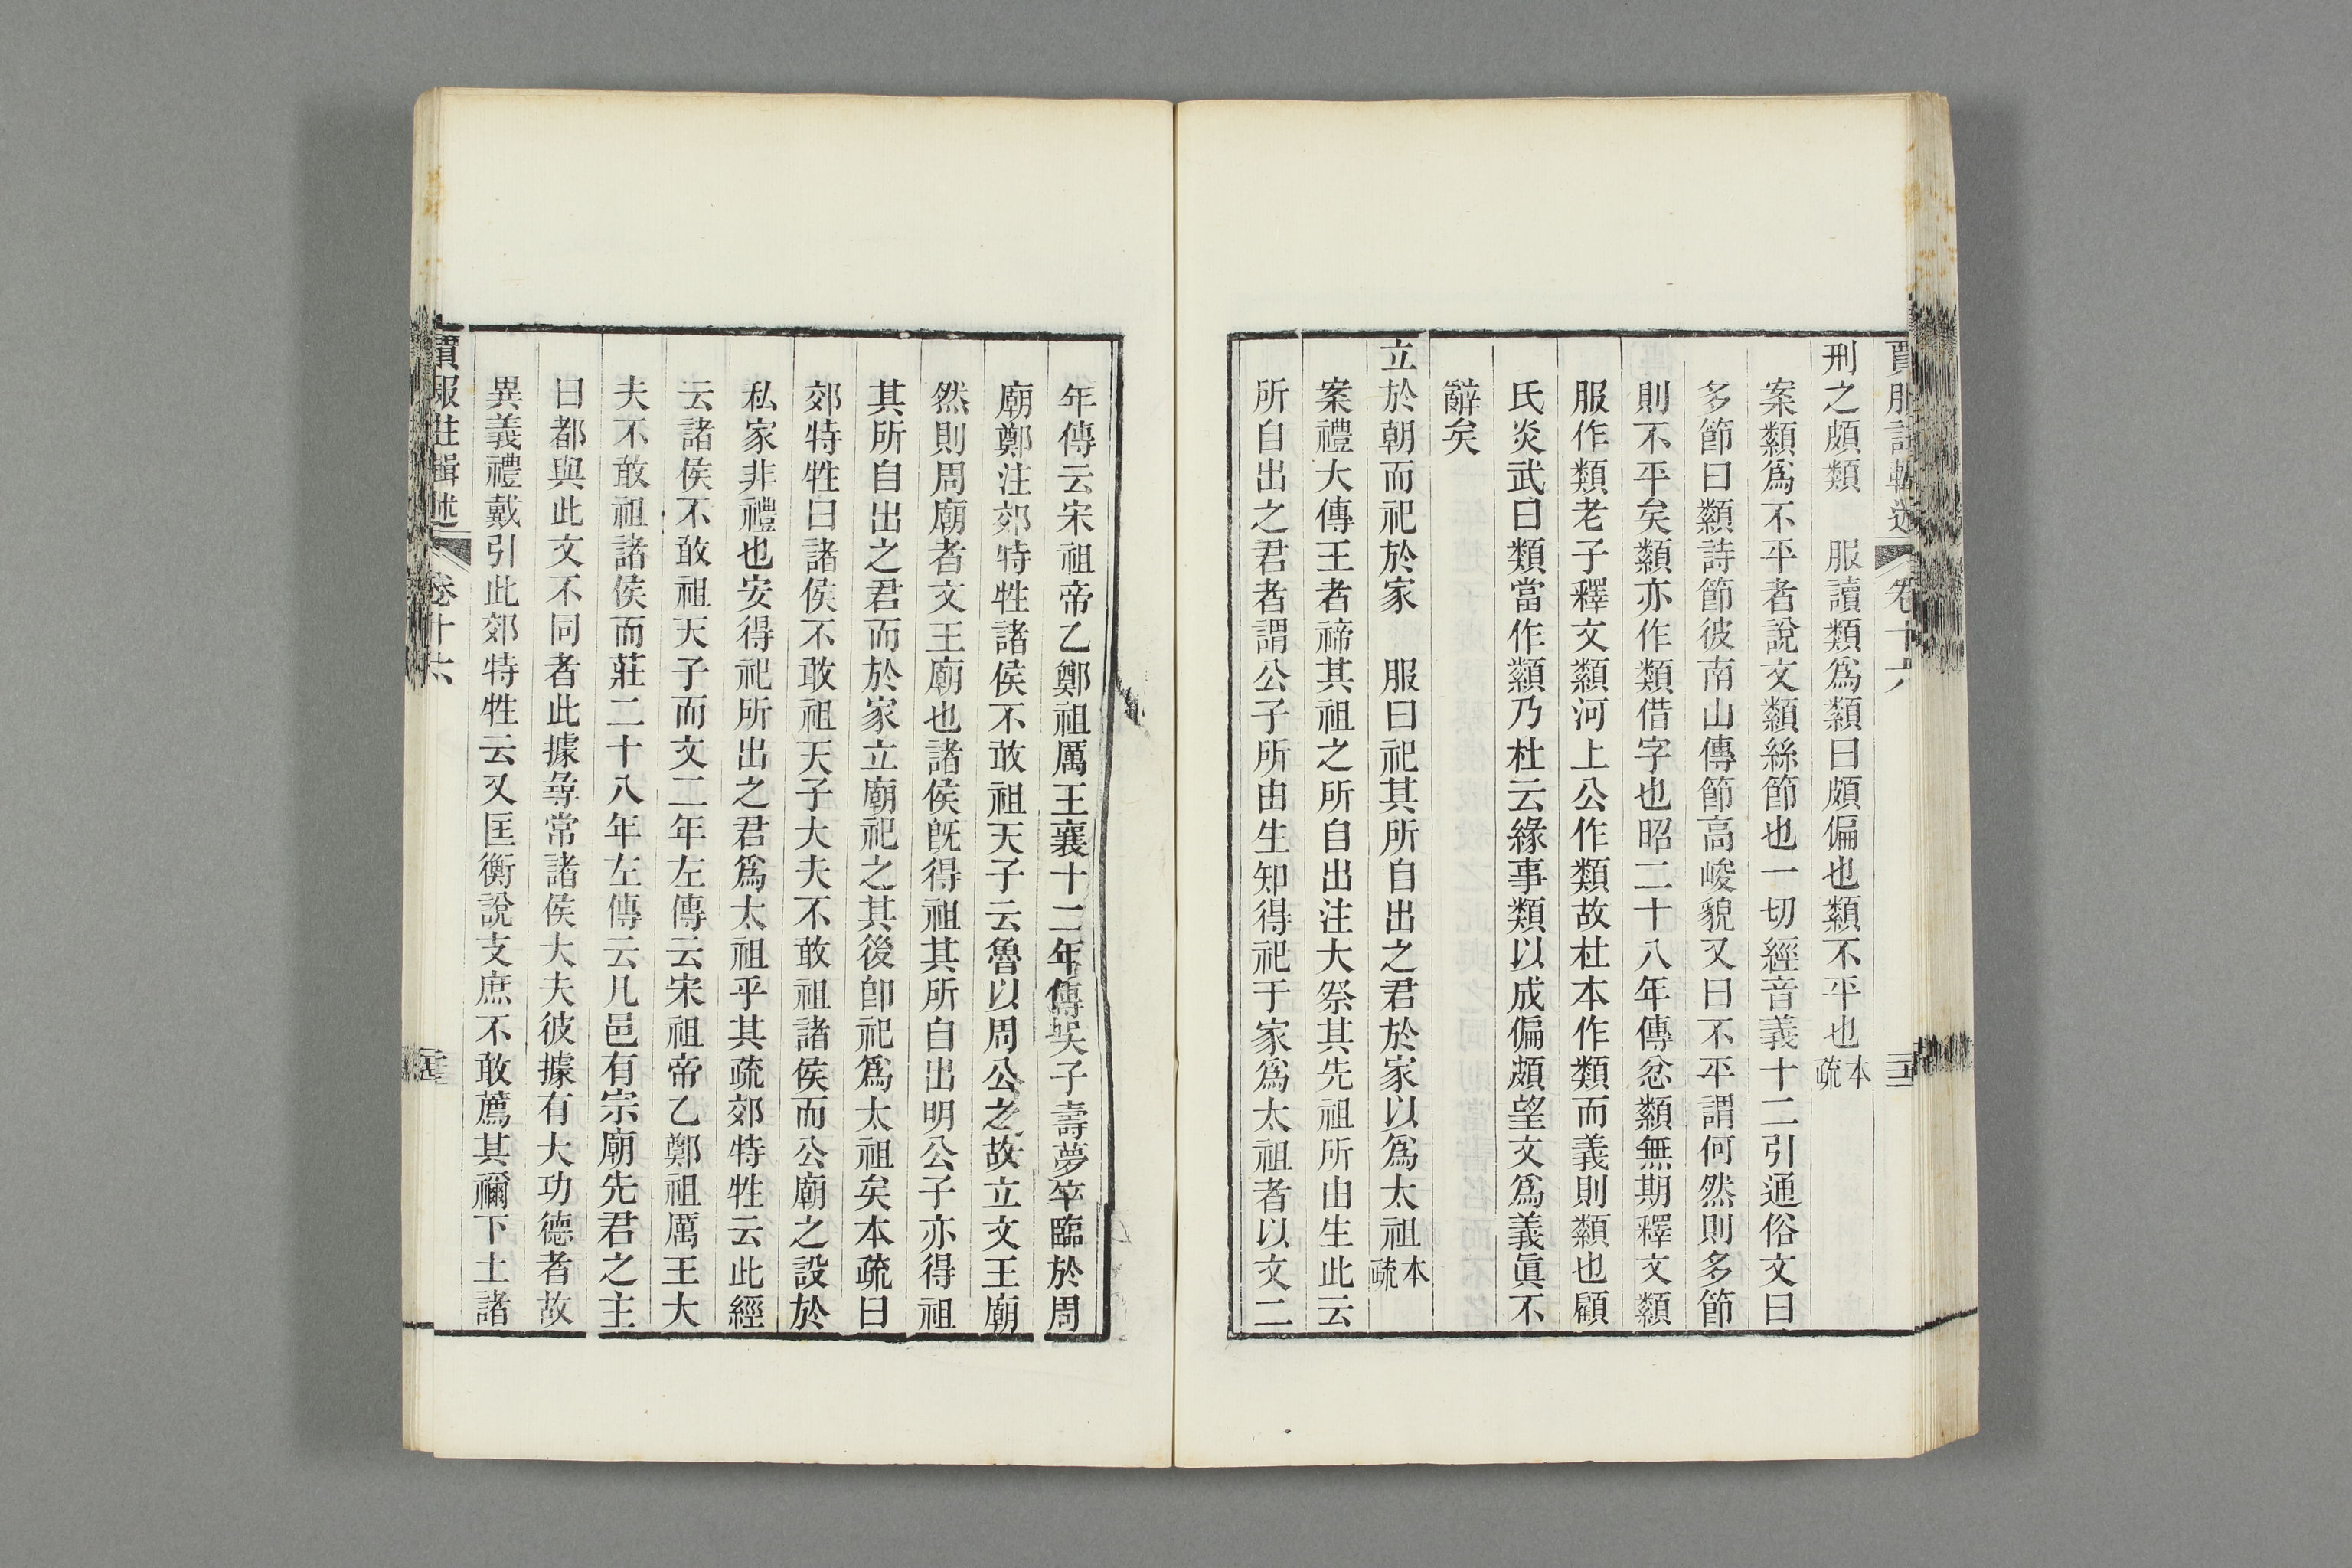 賈服註輯述 卷十六
刑之頗類　服讀類爲纇曰頗偏也纇不平也本疏
案纇爲不平者說文纇絲節也一切經音義十二引通俗文曰
多節曰纇詩節彼南山傳節高峻貌又曰不平謂何然則多節
則不平矣纇亦作類借字也昭二十八年傳忿纇無期釋文纇
服作類老子釋文纇河上公作類故杜本作類而義則纇也顧
氏炎武曰類當作纇乃杜云緣事類以成偏頗望文爲義眞不
辭矣
立於朝而祀於家　服曰祀其所自出之君於家以爲太祖本疏
案禮大傳王者禘其祖之所自出注大祭其先祖所由生此云
所自出之君者謂公子所由生知得祀于家爲太祖者以文二
年傳云宋祖帝乙鄭祖厲王襄十二年傳吳子壽夢卒臨於周
廟鄭注郊特牲諸侯不敢祖天子云魯以周公之故立文王廟
然則周廟者文王廟也諸侯旣得祖其所自出明公子亦得祖
其所自出之君而於家立廟祀之其後卽祀爲太祖矣本疏曰
郊特牲曰諸侯不敢祖天子大夫不敢祖諸侯而公廟之設於
私家非禮也安得祀所出之君爲太祖乎其疏郊特牲云此經
云諸侯不敢祖天子而文二年左傳云宋祖帝乙鄭祖厲王大
夫不敢祖諸侯而莊二十八年左傳云凡邑有宗廟先君之主
曰都與此文不同者此據尋常諸侯大夫彼據有大功德者故
異義禮戴引此郊特牲云又匡衡說支庶不敢薦其禰下士諸
賈服註輯述 卷十六